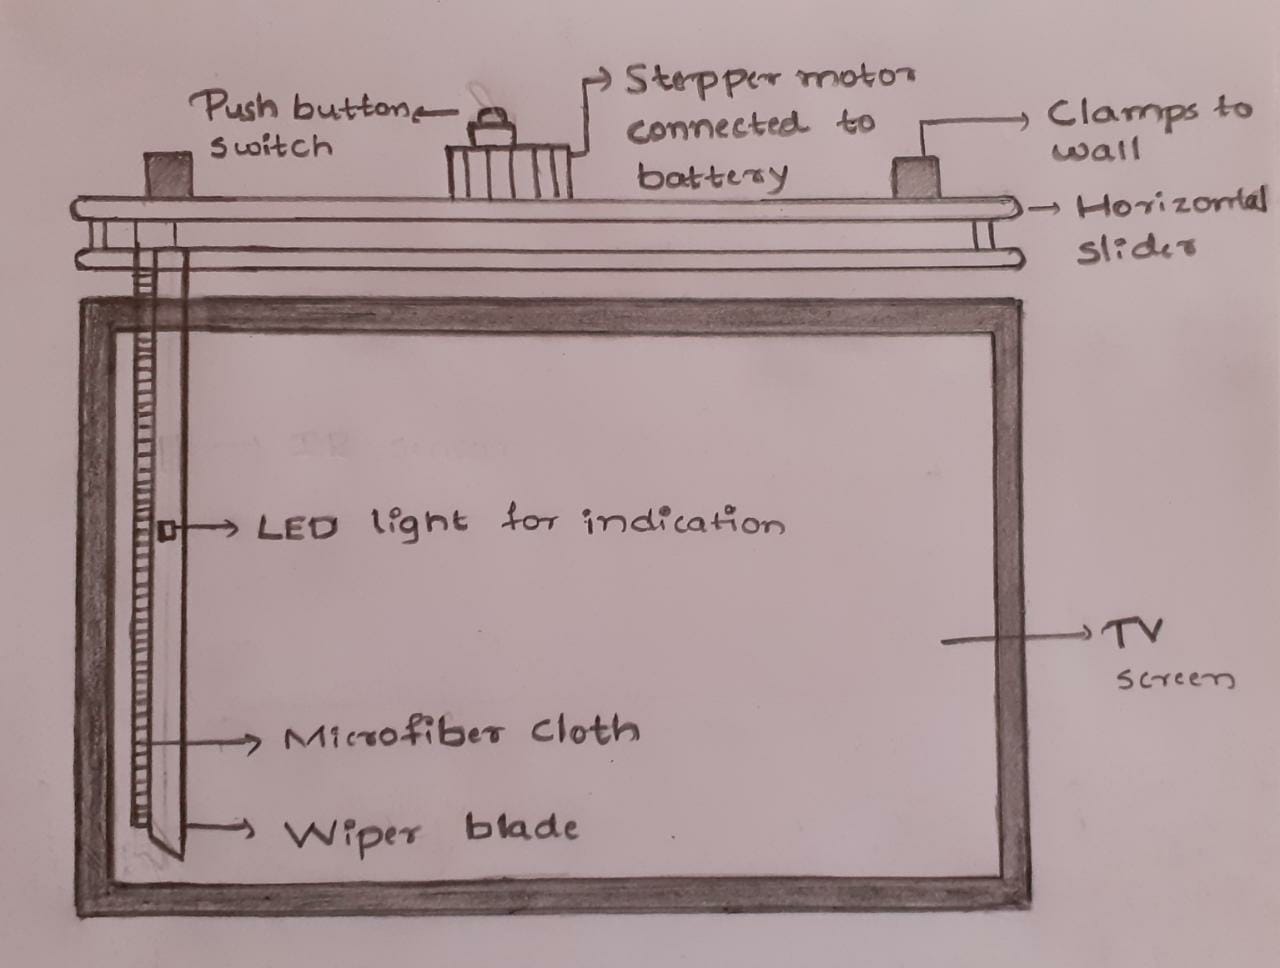 Push button
switch
Stepper motor
connected to
battery
Clamps to
wall
Horizontal
slider
LED light for indication
TV
screen
Microfiber cloth
Wiper blade